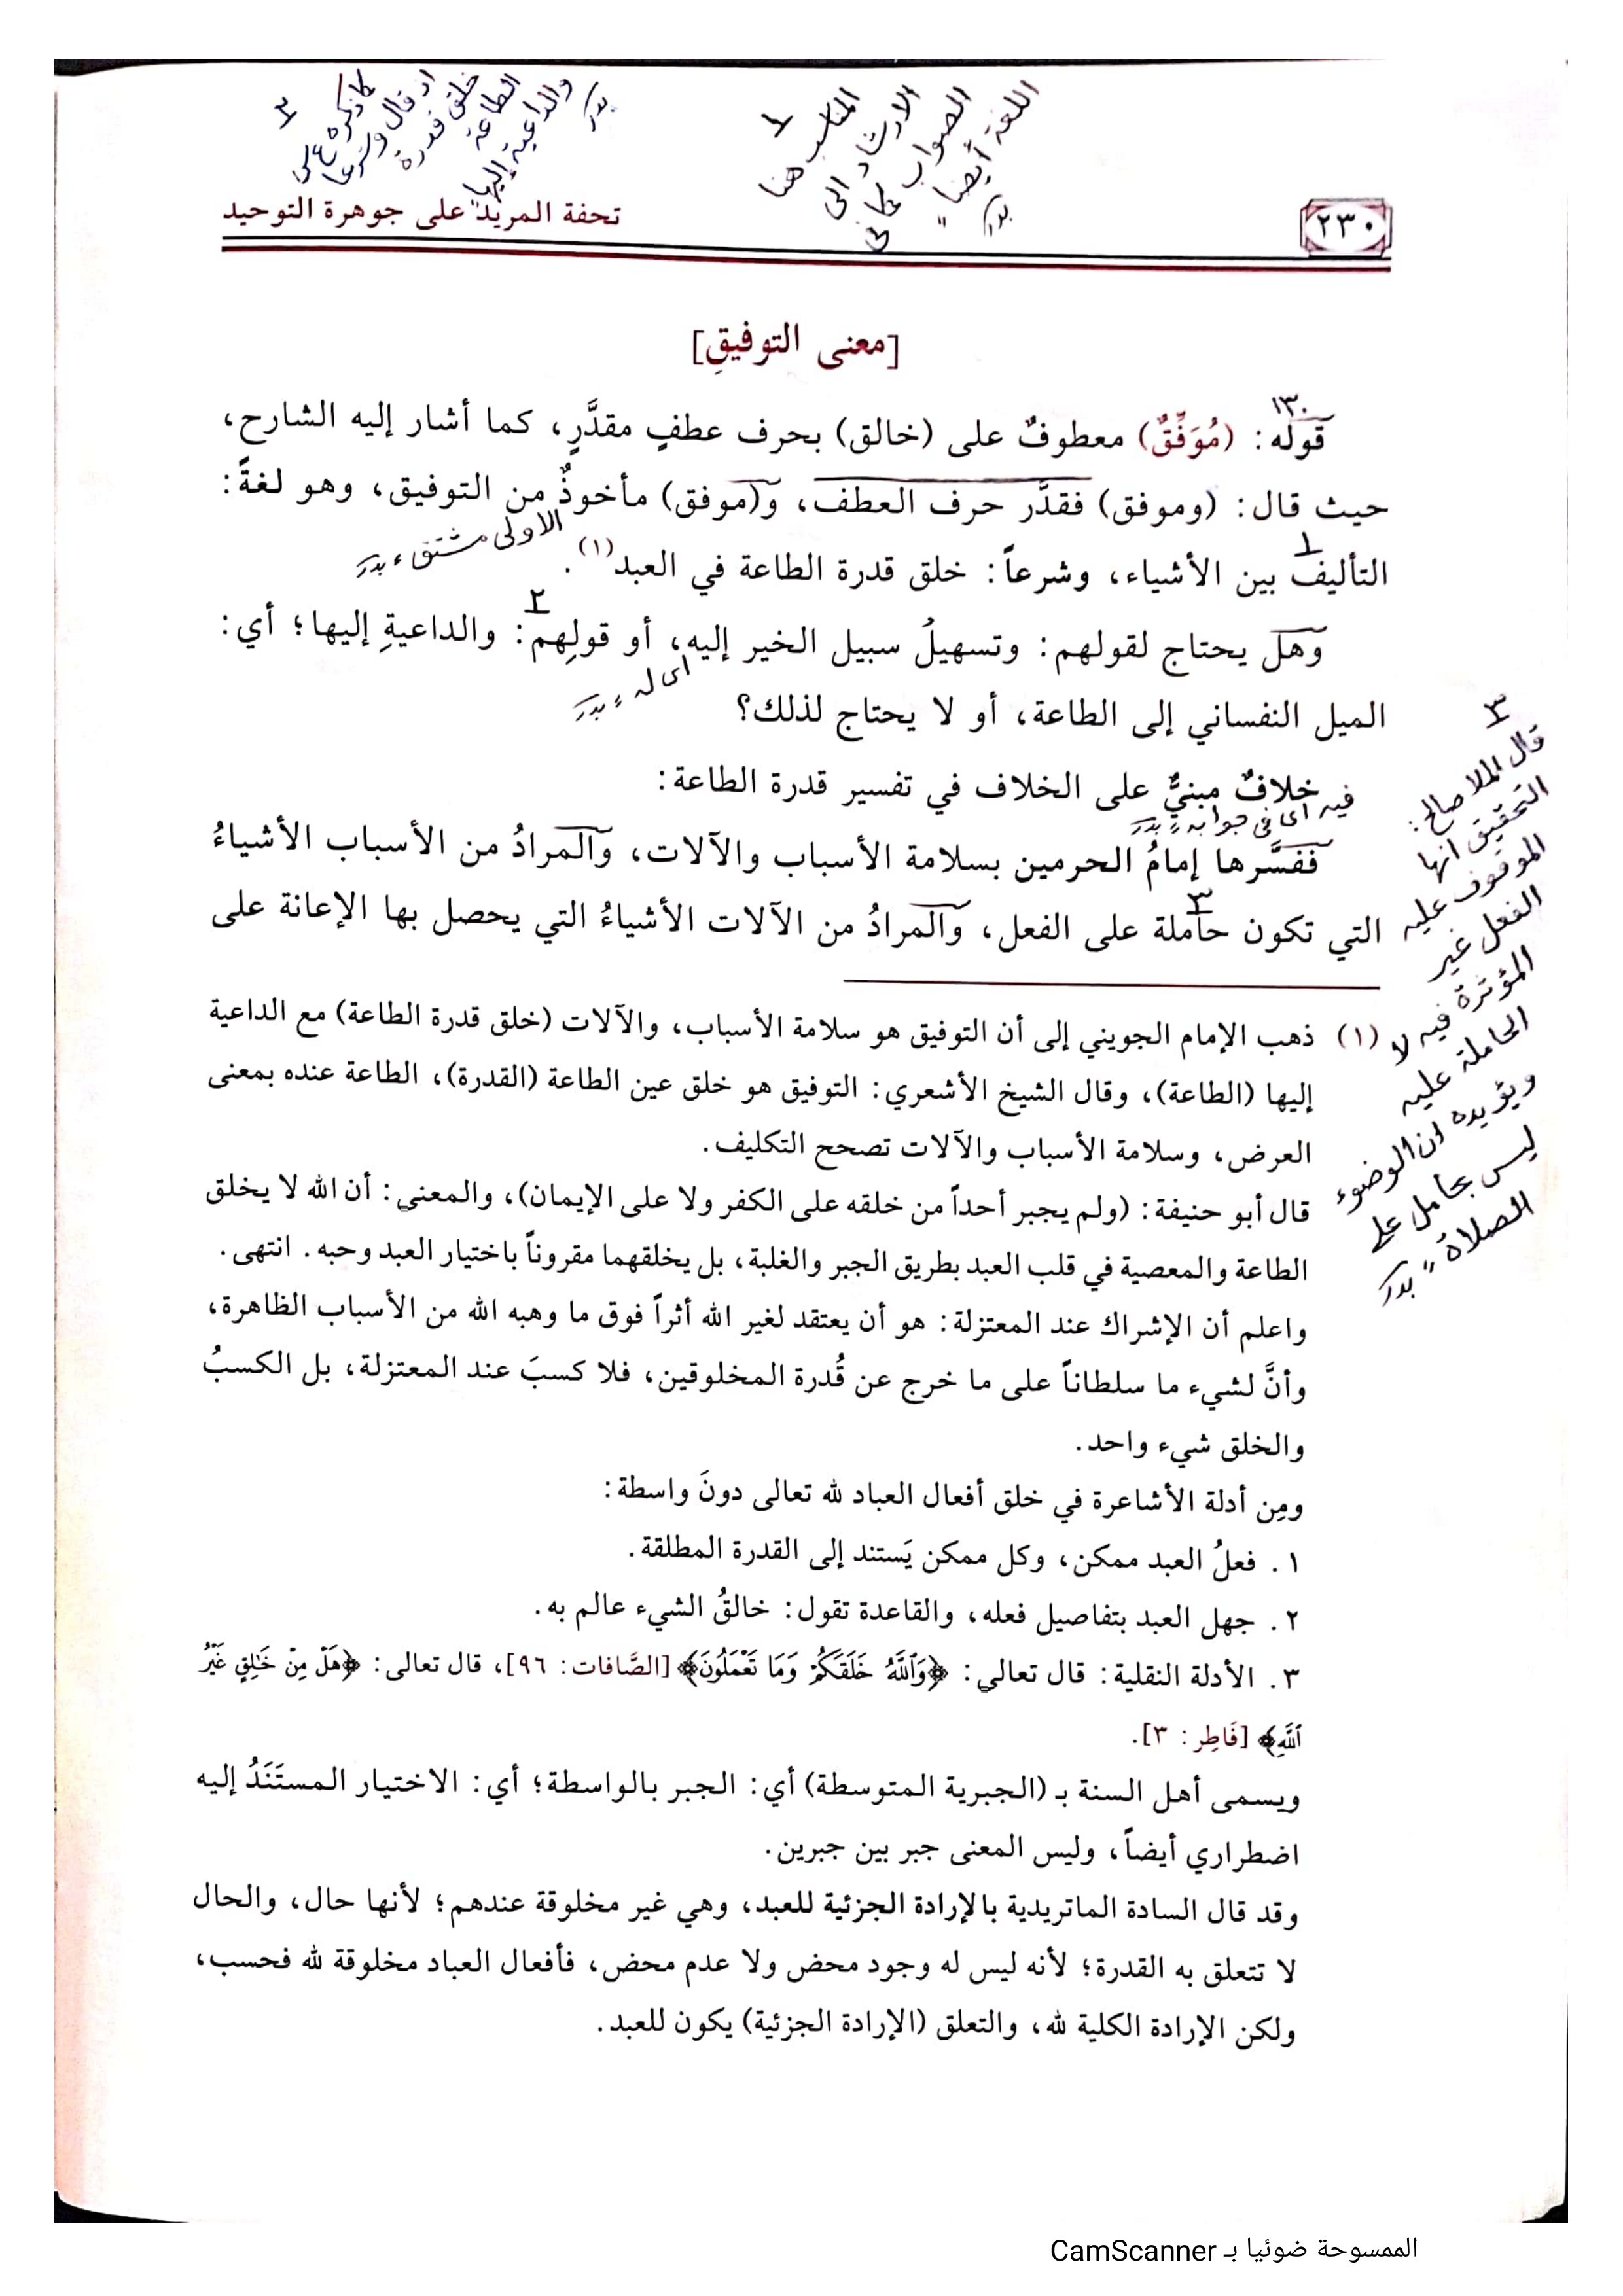 ٢
كما ذكره ع س
اذ قال وشرعا
خلق قدرة
الطاعة
والداعية إليها
بدر
١
المناسب هنا
الارشاد الى
الصواب كما في
اللغة أيضاً
بدر
٢٣٠
تحفة المريد على جوهرة التوحيد
[معنى التوفيقِ]
١٣٠
قوله: (مُوَفِّقٌ) معطوفٌ على (خالق) بحرف عطفٍ مقدَّرٍ، كما أشار إليه الشارح،
حيث قال: (وموفق) فقدَّر حرف العطف، و(موفق) مأخوذٌ من التوفيق، وهو لغةً:
الاولى مشتق، بدر
١
التأليف بين الأشياء، وشرعاً: خلق قدرة الطاعة في العبد(١).
٢
وهل يحتاج لقولهم: وتسهيلُ سبيل الخير إليه، أو قولِهم: والداعيةِ إليها؛ أي:
اى له، بدر
الميل النفساني إلى الطاعة، أو لا يحتاج لذلك؟
خلافٌ مبنيٌّ على الخلاف في تفسير قدرة الطاعة:
فيه اى في جوابه، بدر
ففسَّرها إمامُ الحرمين بسلامة الأسباب والآلات، والمرادُ من الأسباب الأشياءُ
٣
التي تكون حاملة على الفعل، والمرادُ من الآلات الأشياءُ التي يحصل بها الإعانة على
٣
قال الملا صالح:
التحقيق انها
الموقوف عليه
الفعل غير
المؤثرة فيه لا
الحاملة عليه
ويؤيده ان الوضوء
ليس بحامل على
الصلاة، بدر
(١) ذهب الإمام الجويني إلى أن التوفيق هو سلامة الأسباب، والآلات (خلق قدرة الطاعة) مع الداعية
إليها (الطاعة)، وقال الشيخ الأشعري: التوفيق هو خلق عين الطاعة (القدرة)، الطاعة عنده بمعنى
العرض، وسلامة الأسباب والآلات تصحح التكليف.
قال أبو حنيفة: (ولم يجبر أحداً من خلقه على الكفر ولا على الإيمان)، والمعني: أن الله لا يخلق
الطاعة والمعصية في قلب العبد بطريق الجبر والغلبة، بل يخلقهما مقروناً باختيار العبد وحبه. انتهى.
واعلم أن الإشراك عند المعتزلة: هو أن يعتقد لغير الله أثراً فوق ما وهبه الله من الأسباب الظاهرة،
وأنَّ لشيء ما سلطاناً على ما خرج عن قُدرة المخلوقين، فلا كسبَ عند المعتزلة، بل الكسبُ
والخلق شيء واحد.
ومِن أدلة الأشاعرة في خلق أفعال العباد لله تعالى دونَ واسطة:
١. فعلُ العبد ممكن، وكل ممكن يَستند إلى القدرة المطلقة.
٢. جهل العبد بتفاصيل فعله، والقاعدة تقول: خالقُ الشيء عالم به.
٣. الأدلة النقلية: قال تعالي: ﴿وَٱللَّهُ خَلَقَكُمْ وَمَا تَعْمَلُونَ﴾ [الصَّافات: ٩٦]، قال تعالى: ﴿هَلْ مِنْ خَٰلِقٍ غَيْرُ
ٱللَّهِ﴾ [فَاطِر: ٣].
ويسمى أهل السنة بـ (الجبرية المتوسطة) أي: الجبر بالواسطة؛ أي: الاختيار المستَنَدُ إليه
اضطراري أيضاً، وليس المعنى جبر بين جبرين.
وقد قال السادة الماتريدية بالإرادة الجزئية للعبد، وهي غير مخلوقة عندهم؛ لأنها حال، والحال
لا تتعلق به القدرة؛ لأنه ليس له وجود محض ولا عدم محض، فأفعال العباد مخلوقة لله فحسب،
ولكن الإرادة الكلية لله، والتعلق (الإرادة الجزئية) يكون للعبد.
الممسوحة ضوئيا بـ CamScanner